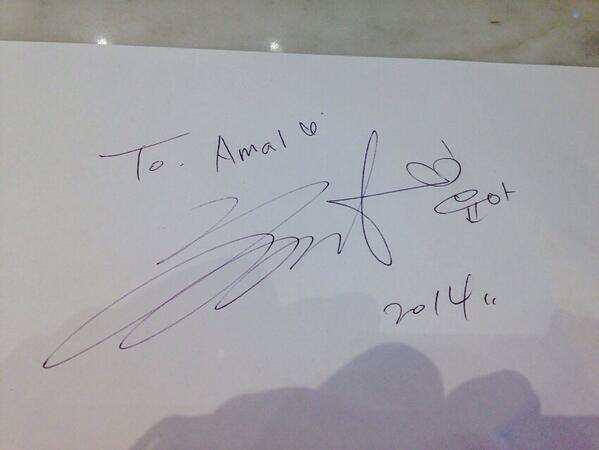 To. Amal ♡
유아
2014"